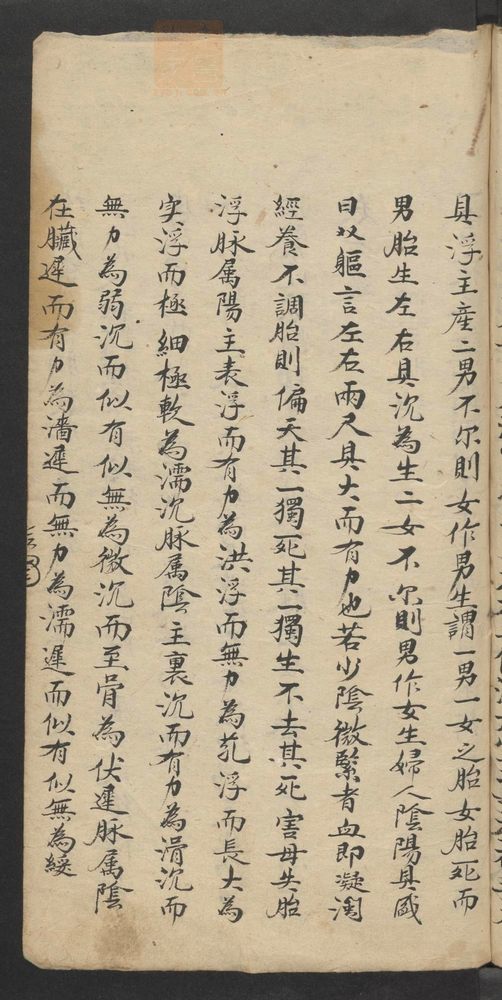 具浮主產二男不尔則女作男生謂一男一女之胎女胎死而
男胎生左右具沉為生二女不尔則男作女生婦人陰陽具盛
曰双軀言左右兩尺具大而有力也若少陰微緊者血即凝濁
經養不調胎則偏夭其一獨死其一獨生不去其死害母失胎
浮脉属陽主表浮而有力為洪浮而無力為芤浮而長大為
实浮而極細極軟為濡沉脉属陰主裏沉而有力為滑沉而
無力為弱沉而似有似無為微沉而至骨為伏遲脉属陰
在臟遲而有力為濇遲而無力為濡遲而似有似無為緩